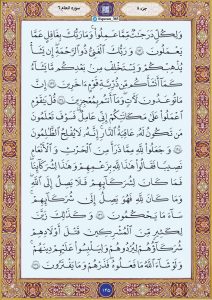 جزء ٨
سوره الانعام ٦
وَلِكُلٍّ دَرَجَٰتٌ مِّمَّا عَمِلُوا۟ وَمَا رَبُّكَ بِغَٰفِلٍ عَمَّا
يَعْمَلُونَ ۝ وَرَبُّكَ ٱلْغَنِىُّ ذُو ٱلرَّحْمَةِ إِن يَشَأْ
يُذْهِبْكُمْ وَيَسْتَخْلِفْ مِنۢ بَعْدِكُم مَّا يَشَآءُ
كَمَآ أَنشَأَكُم مِّن ذُرِّيَّةِ قَوْمٍ ءَاخَرِينَ ۝ إِنَّ
مَا تُوعَدُونَ لَءَاتٍ وَمَآ أَنتُم بِمُعْجِزِينَ ۝ قُلْ يَٰقَوْمِ
ٱعْمَلُوا۟ عَلَىٰ مَكَانَتِكُمْ إِنِّى عَامِلٌ فَسَوْفَ تَعْلَمُونَ
مَن تَكُونُ لَهُۥ عَٰقِبَةُ ٱلدَّارِ إِنَّهُۥ لَا يُفْلِحُ ٱلظَّٰلِمُونَ
۝ وَجَعَلُوا۟ لِلَّهِ مِمَّا ذَرَأَ مِنَ ٱلْحَرْثِ وَٱلْأَنْعَٰمِ
نَصِيبًا فَقَالُوا۟ هَٰذَا لِلَّهِ بِزَعْمِهِمْ وَهَٰذَا لِشُرَكَآئِنَا
فَمَا كَانَ لِشُرَكَآئِهِمْ فَلَا يَصِلُ إِلَى ٱللَّهِ
وَمَا كَانَ لِلَّهِ فَهُوَ يَصِلُ إِلَىٰ شُرَكَآئِهِمْ
سَآءَ مَا يَحْكُمُونَ ۝ وَكَذَٰلِكَ زَيَّنَ
لِكَثِيرٍ مِّنَ ٱلْمُشْرِكِينَ قَتْلَ أَوْلَٰدِهِمْ
شُرَكَآؤُهُمْ لِيُرْدُوهُمْ وَلِيَلْبِسُوا۟ عَلَيْهِمْ دِينَهُمْ
وَلَوْ شَآءَ ٱللَّهُ مَا فَعَلُوهُ فَذَرْهُمْ وَمَا يَفْتَرُونَ ۝
١٤٥